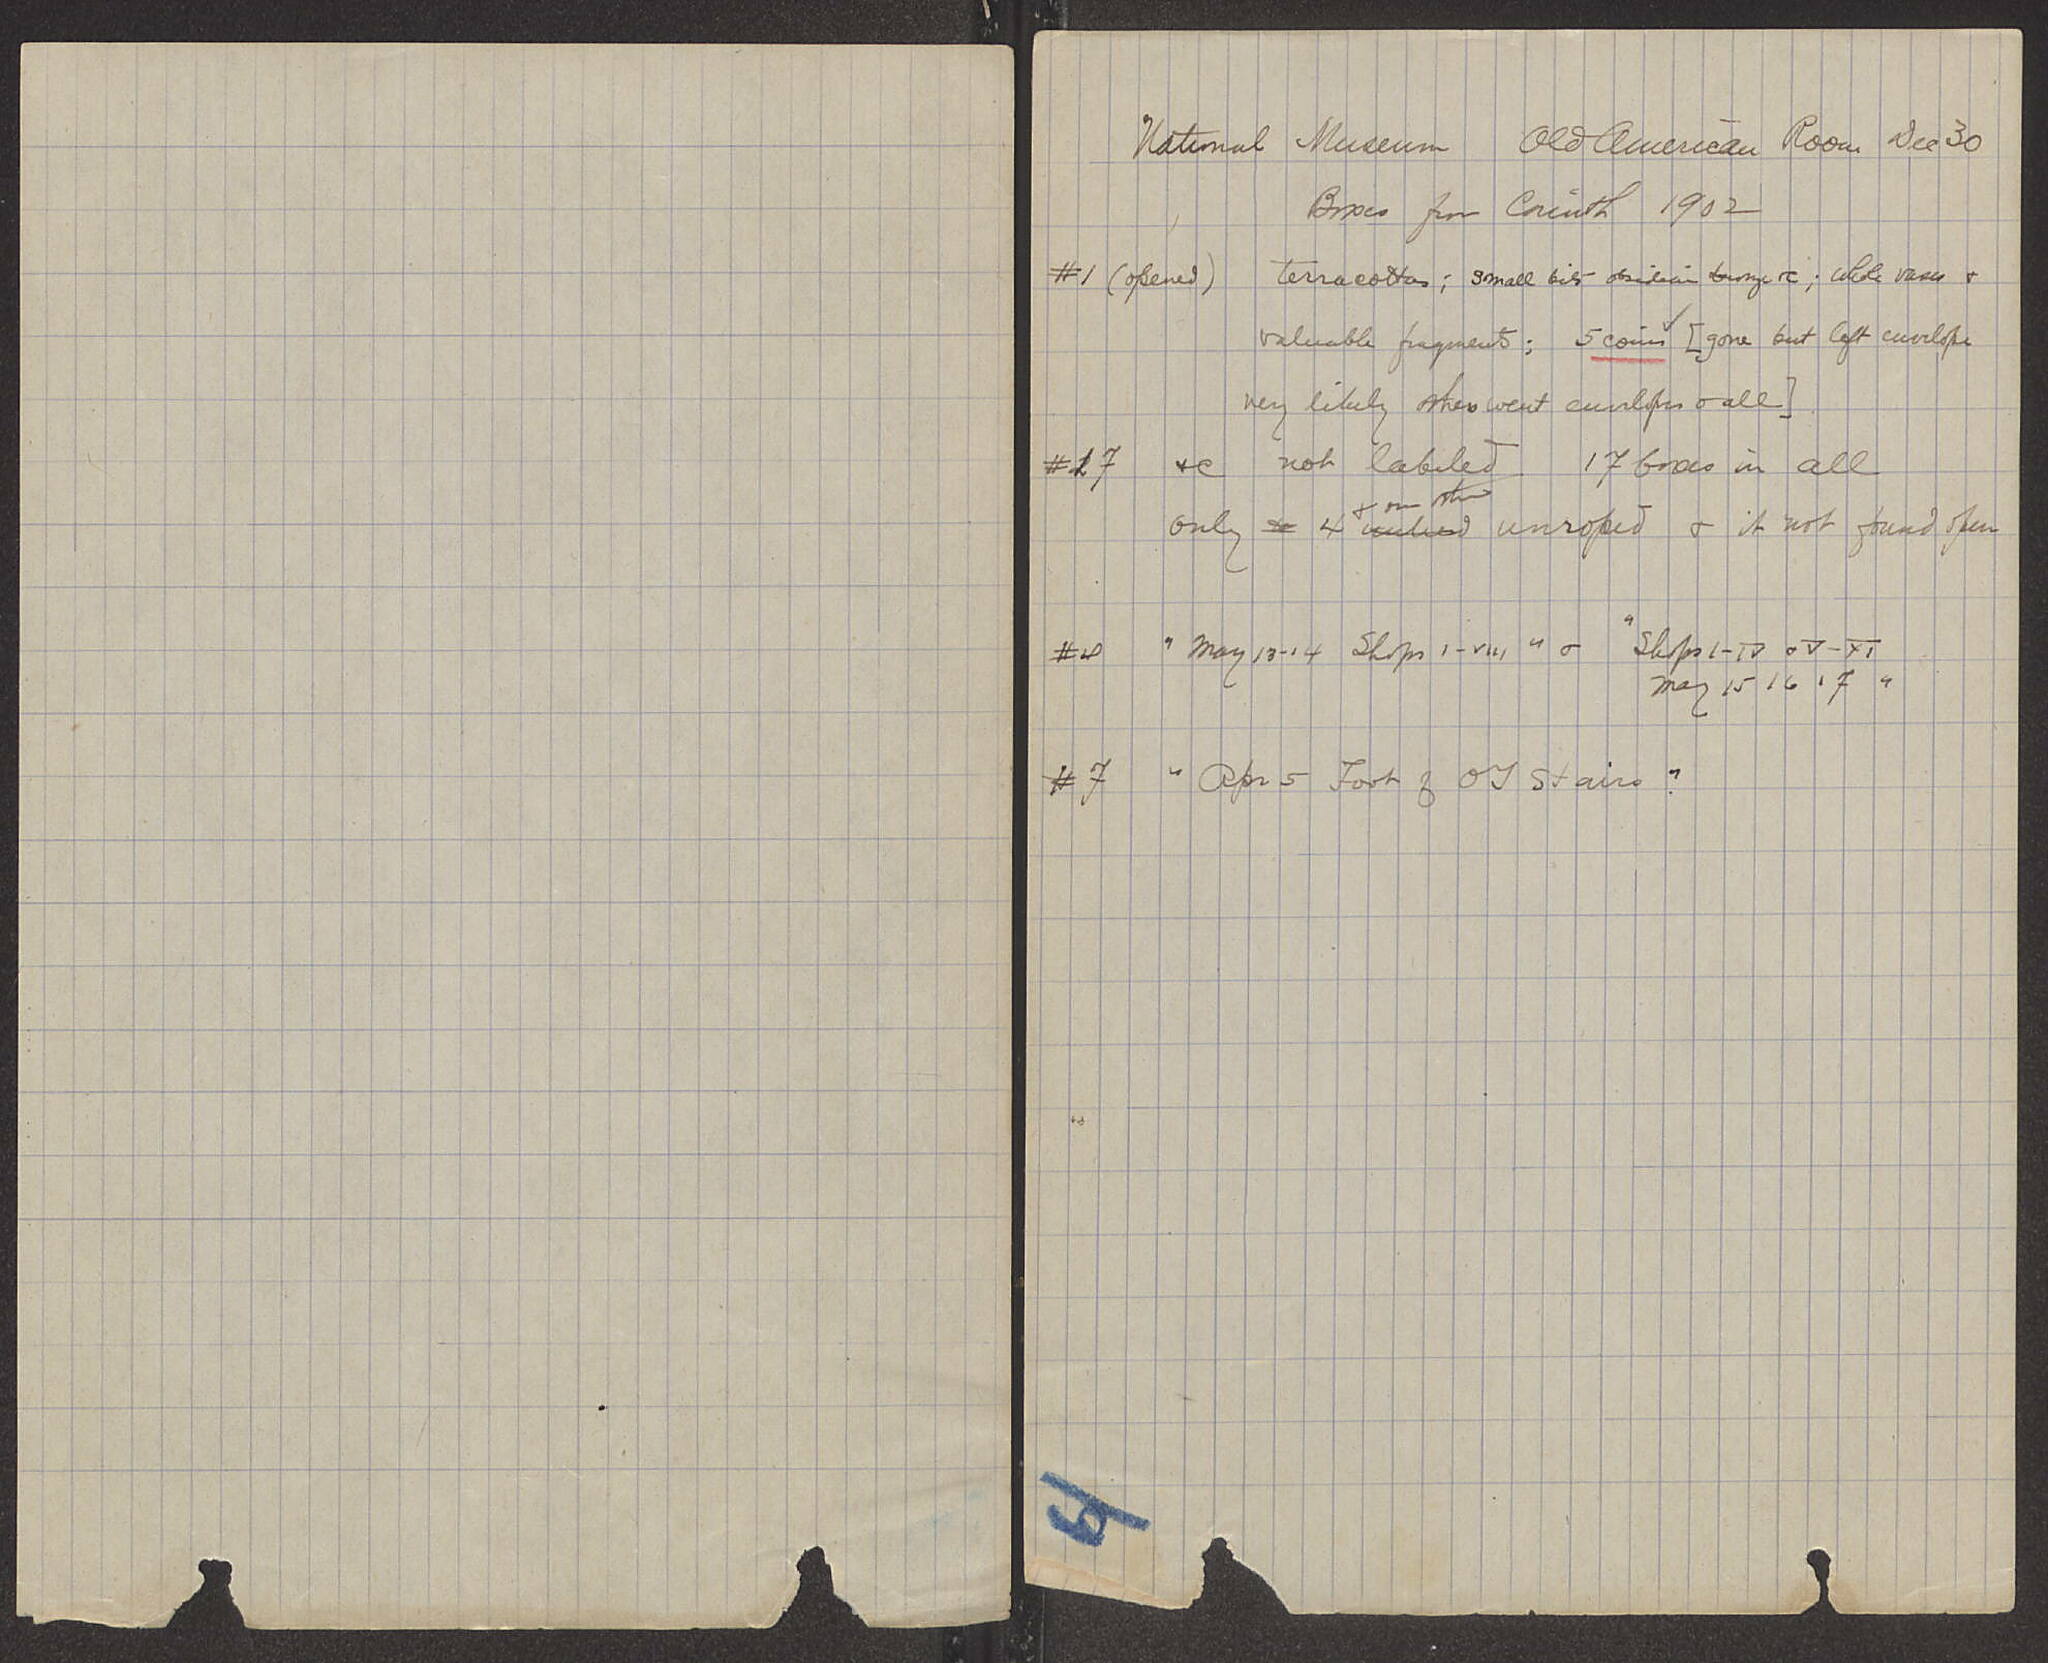 National Museum Old American Room Dec 30
Boxes from Corinth 1902
#1 (opened) terracottas; small bits obsidian bronze &c; whole vases &
valuable fragments; 5 coins ✓ [gone but left envelope
very likely others went envelopes & all]
#17 &c not labeled 17 boxes in all
& one other
only 4 unroped & it not found open
#4 "May 13-14 Shops I-VIII" & "Shops I-IV & V-XI
May 15 16 17"
#7 "Apr 5 Foot of OT Stairs"